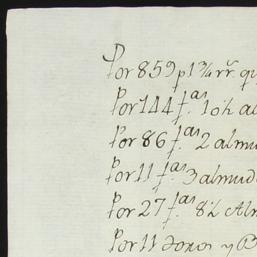 Por 859 p 1¾ rr. qu
Por 144 f.as 10½ al
Por 86 f.as 2 almu
Por 11 f.as 3 almud
Por 27 f.as 8½ Alm
Por 11 y B